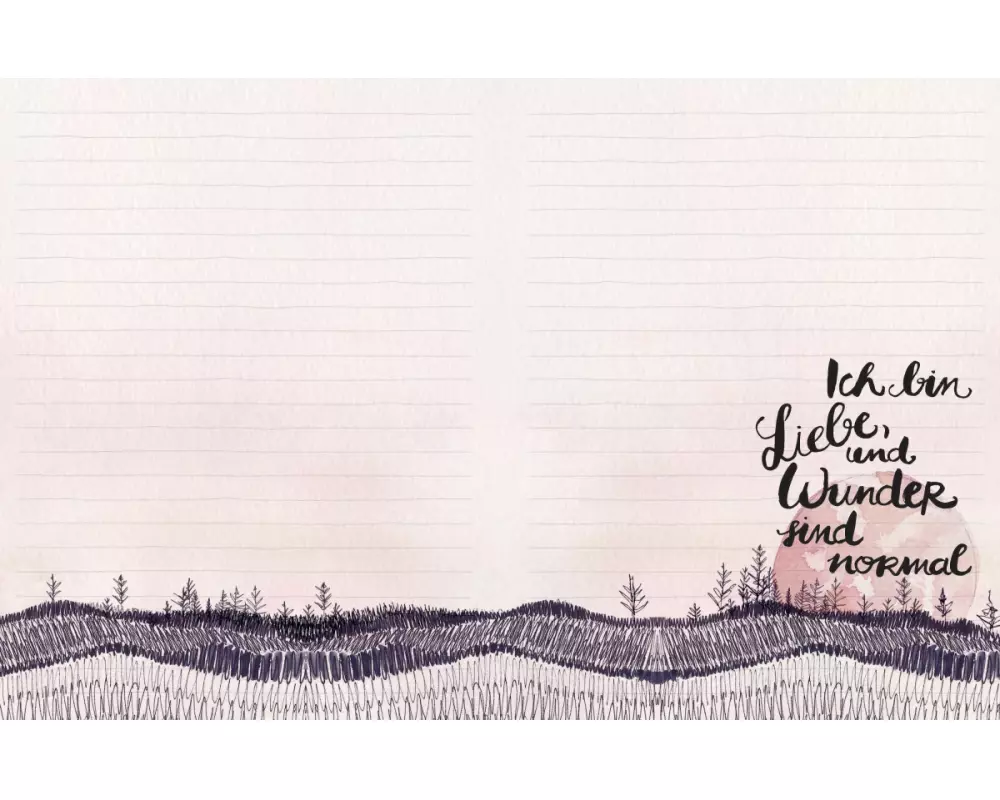 Ich bin
Liebe,
und
Wunder
sind
normal